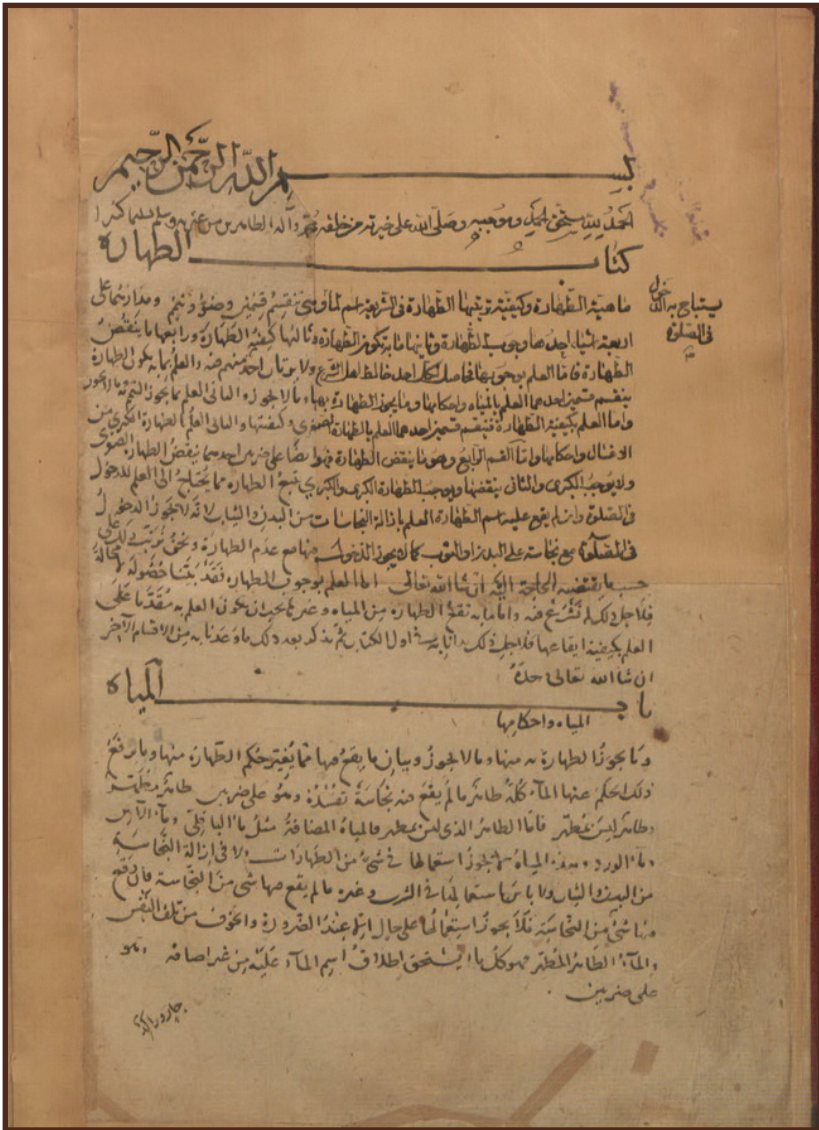 بسم الله الرحمن الرحيم
الحمد لله مستحق الحمد وموجبه وصلى الله على خيرته من خلقه محمد وآله الطاهرين من عترته وسلم تسليما كثيرا
كتاب الطهارة
ماهية الطهارة وكيفية ترتيبها الطهارة في الشريعة اسم لما
يستباح به الدخول
في الصلوة
وهي ينقسم قسمين وضوء وتيمم ومدارهما على
اربعة اشياء احدها وجوب الطهارة وثانيها ما به تكون الطهارة وثالثها كيفية الطهارة ورابعها ما ينقض
الطهارة فاما العلم بوجوبها فحاصل لكل احد خالط اهل الشرع ولا يرتاب احد منهم فيه والعلم بما به يكون الطهارة
ينقسم قسمين احدهما العلم بالمياه واحكامها وما يجوز الطهارة بها وما لا يجوز والثاني العلم بما يجوز التيمم به وما لا يجوز
واما العلم بكيفية الطهارة فينقسم قسمين احدهما العلم بالطهارة الصغرى وكيفيتها والثاني العلم بالطهارة الكبرى من
الاغسال واحكامها واما القسم الرابع وهو ما ينقض الطهارة فهو ايضا على ضربين احدهما ينقض الطهارة الصغرى
ولا يوجب الكبرى والثاني ينقضها ويوجب الطهارة الكبرى والكبرى يتبع الطهارة مما يحتاج الى العلم للدخول
في الصلوة وان لم يقع عليه اسم الطهارة العلم بازالة النجاسات من البدن والثياب لانه لا يجوز الدخول
في الصلوة مع نجاسة على البدن او الثوب كما لا يجوز الدخول فيها مع عدم الطهارة ونحن نرتب ذلك على
حسب ما يقتضيه الحاجة اليه ان شا الله تعالى اما العلم بوجوب الطهارة فقد بينا حصوله لا محالة
فلاجل ذلك لم نشرع فيه واما ما به تقع الطهارة من المياه وغيرها يجب ان يكون العلم به مقدما على
العلم بكيفية ايقاعها فلاجل ذلك بدانا به في اول الكتاب ثم نذكر بعد ذلك ما وعدنا به من الاقسام الآخر
ان شا الله تعالى حده
باب المياه
المياه واحكامها
وما يجوز الطهارة به منها وما لا يجوز وبيان ما يقع فيها مما يغير حكم الطهارة منها وما يرفع
ذلك الحكم عنها الماء كله طاهر ما لم يقع فيه نجاسة تفسده وهو على ضربين طاهر مطهر
وطاهر ليس بمطهر فاما الطاهر الذي ليس بمطهر فالمياه المضافة مثل ماء الباقلى وماء الآس
وماء الورد وهذه المياه لا يجوز استعمالها في شيء من الطهارات ولا في ازالة النجاسة
من البدن والثياب ولا باس باستعمالها في الشرب وغيره ما لم يقع فيها شي من النجاسة فان وقع
فيها شيء من النجاسة فلا يجوز استعمالها على حال الا عند الضرورة والخوف من تلف النفس
والماء الطاهر المطهر فهو كل ما يستحق اطلاق اسم الماء عليه من غير اضافة وهو
على ضربين